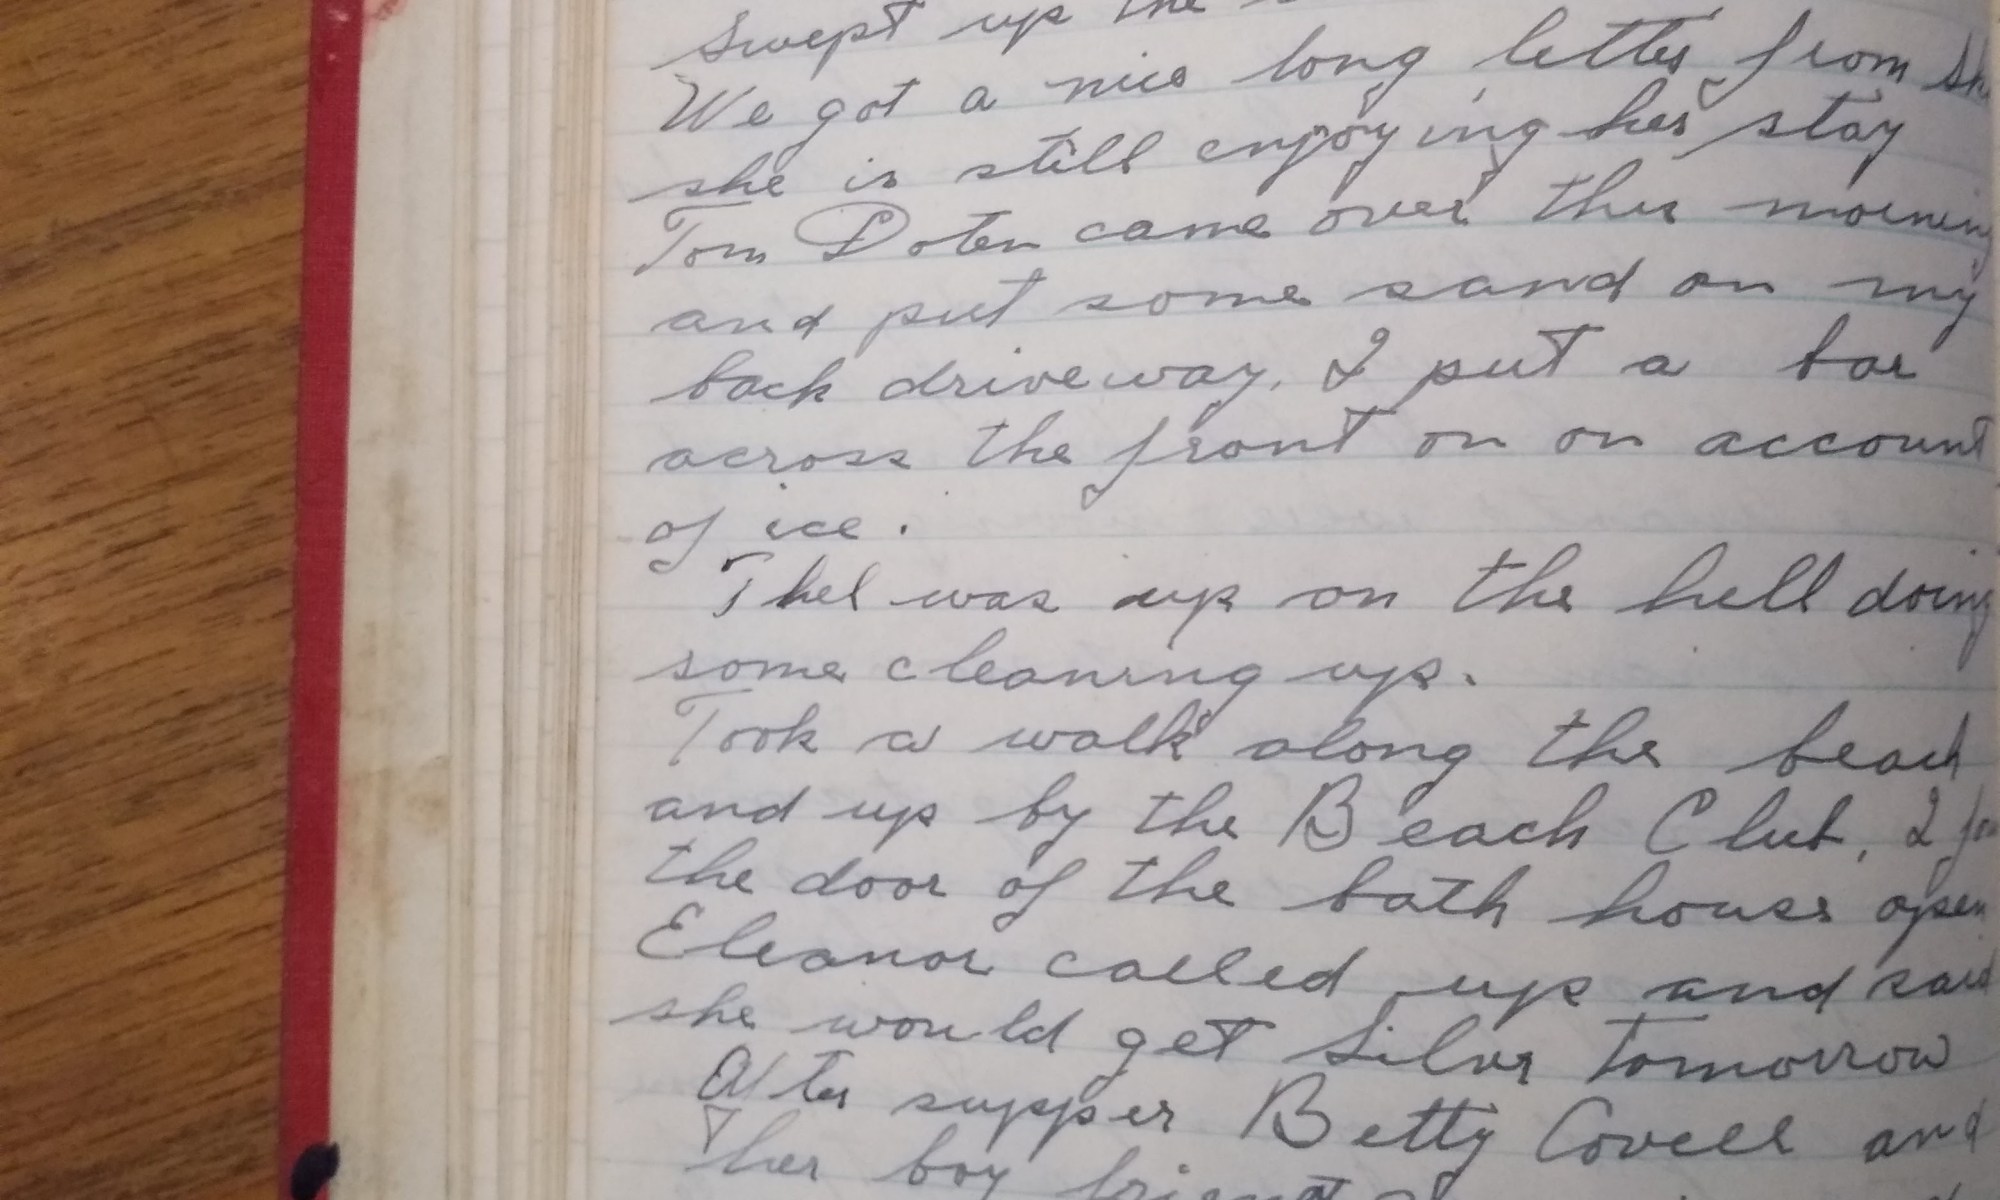 swept up the
We got a nice long letter from
she is still enjoying her stay
Tom Doten came over this morning
and put some sand on my
back driveway. I put a bar
across the front on on account
of ice.
Thel was up on the hill doing
some cleaning up.
Took a walk along the beach
and up by the Beach Club, I
the door of the bath house open
Eleanor called up and said
she would get Silver tomorrow
After supper Betty Covell and
her boy friend